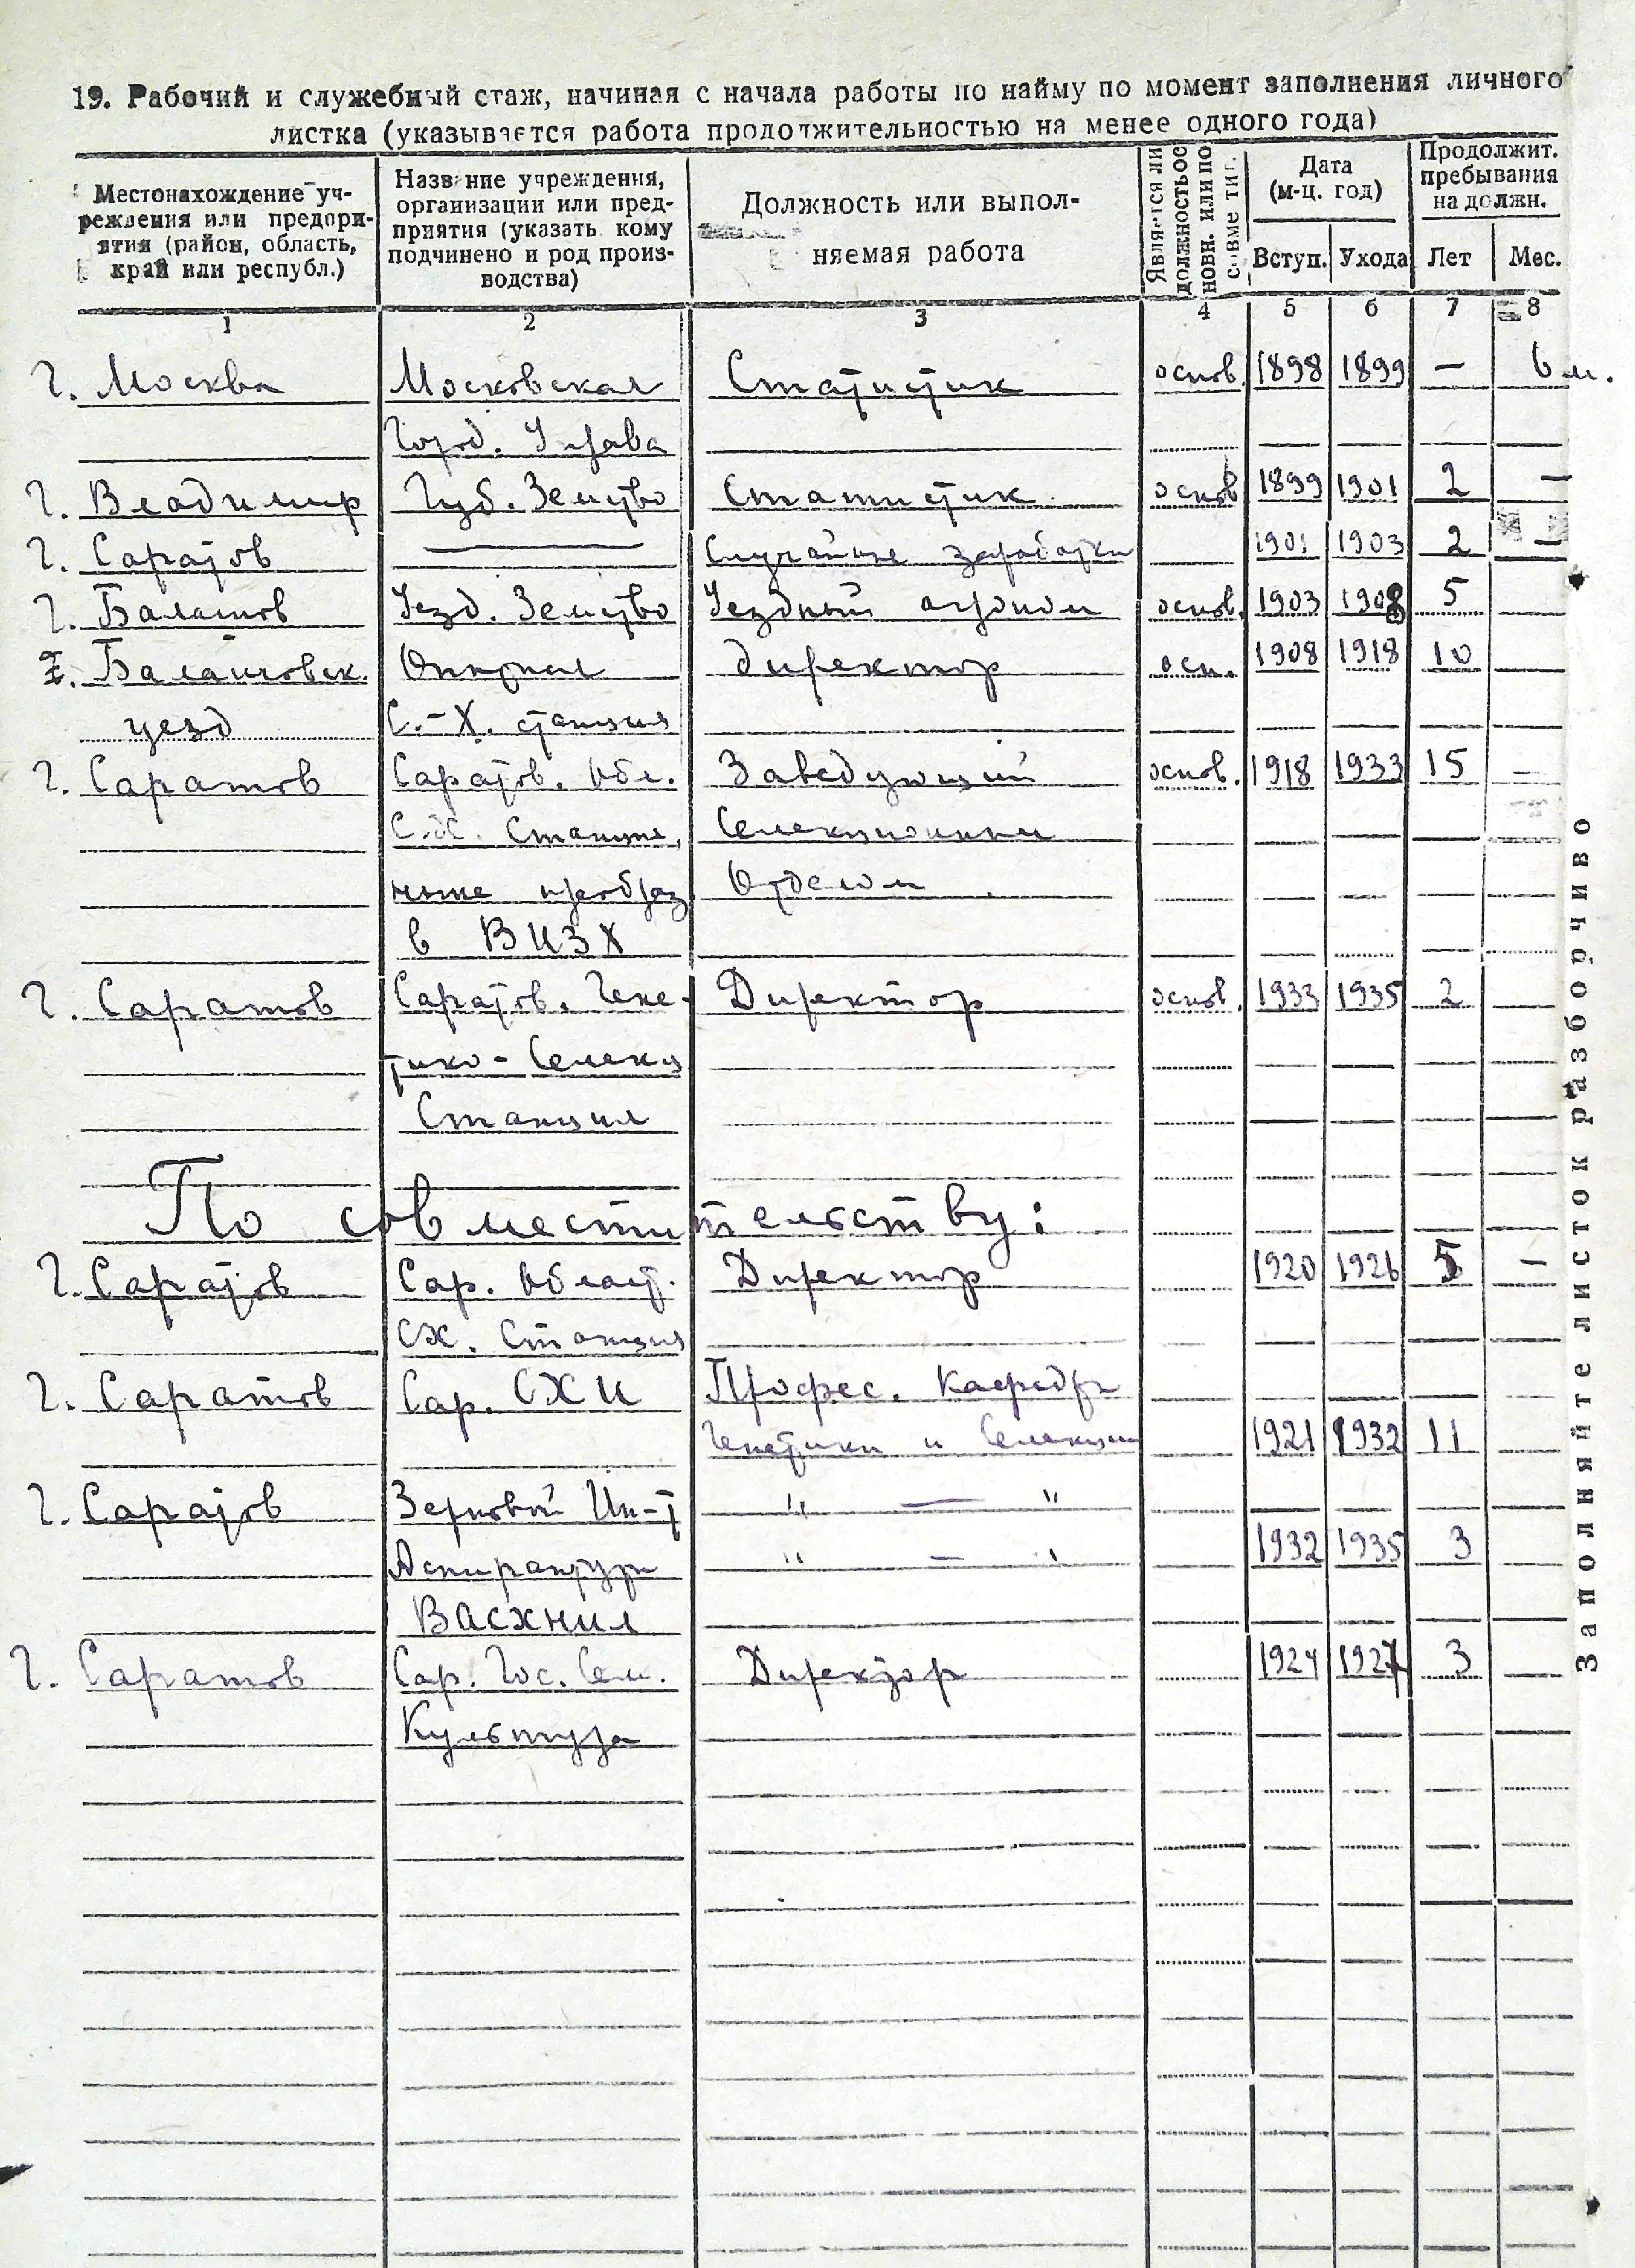 19. Рабочий и служебный стаж, начиная с начала работы по найму по момент заполнения личного
листка (указывается работа продолжительностью на менее одного года)
Местонахождение уч-
реждения или предпри-
ятия (район, область,
край или республ.)
Название учреждения,
организации или пред-
приятия (указать кому
подчинено и род произ-
водства)
Должность или выпол-
няемая работа
Является ли
должность ос
новн. или по
совме тит.
Дата
(м-ц. год)
Вступ. Ухода
Продолжит.
пребывания
на должн.
Лет Мес.
1 2 3 4 5 6 7 8
г. Москва Московская Статистик основ. 1898 1899 — 6 м.
Город. Управа
г. Владимир Губ. Земство Статистик основ 1899 1901 2 —
г. Саратов — Случайные заработки 1901 1903 2 —
г. Балашов Уезд. Земство Уездный агроном основ. 1903 1908 5
Балашовск. Опытная директор осн. 1908 1918 10
уезд С.-Х. станция
г. Саратов Саратов. Обл. Заведующий основ. 1918 1933 15 —
С.Х. Станция, Селекционным
ныне преобраз. Отделом
в ВИЗХ
г. Саратов Саратов. Гене- Директор основ. 1933 1935 2
тико-Селекц
Станция
По совместительству:
г. Саратов Сар. Област. Директор 1920 1926 5 —
СХ. Станция
г. Саратов Сар. СХИ Профес. Кафедры
Генетики и Селекции 1921 1932 11
г. Саратов Зерновой Ин-т " — "
Аспирантуры " — " 1932 1935 3
ВАСХНИЛ
г. Саратов Сар. Гос. Сем. Директор 1924 1927 3
Культура
Заполняйте листок разборчиво